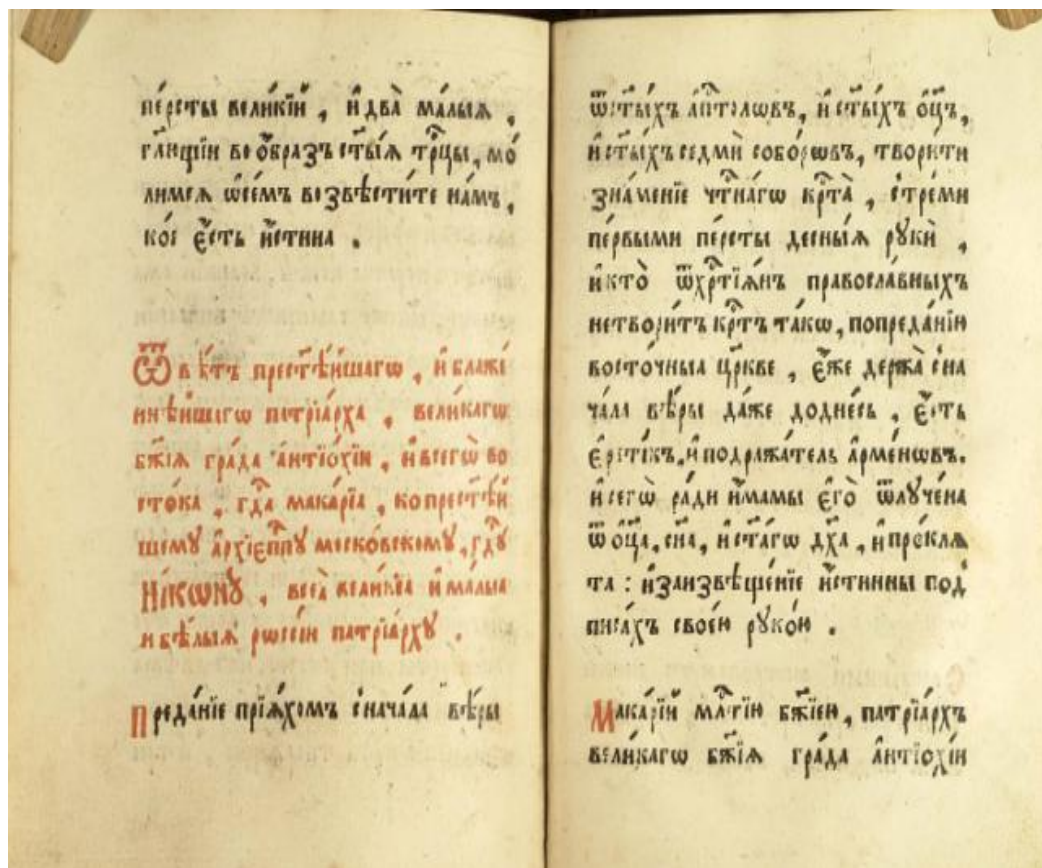 пе́рсты вели́кїй , и҆ два̀ ма́лыѧ ,
гл҃ющїи во ѻ҆́бразъ ст҃ы́ѧ трⷪ҇цы, мо́
лимсѧ ѡ҆се́мъ возвѣсти́те на́мъ ,
кое є҆́сть и҆́стина .
Ѿвѣ́тъ прест҃ѣ́йшагѡ , и҆ блаже́
ннѣ́йшагѡ патрїа́рха , вели́кагѡ
бж҃їѧ гра́да а҆нтїохі́и , и҆ всегѡ̀ во
сто́ка , гдⷭ҇а мака́рїа , ко прест҃ѣ́й
шемꙋ а҆рхїєпⷭ҇пꙋ моско́вскомꙋ , гдⷭ҇ꙋ
Ни́кѡнꙋ , всеѧ̀ вели́кїа и҆ ма́лыа
и҆ бѣ́лыѧ рѡссі́и патрїа́рхꙋ .
Преда́нїе прїѧ́хомъ снача́ла вѣ́ры
ѿст҃ы́хъ а҆пⷭ҇толѡвъ, и҆ ст҃ы́хъ ѻ҆ц҃ъ,
и҆ ст҃ы́хъ седмѝ собо́рѡвъ, твори́ти
зна́менїе чⷭ҇тна́гѡ крⷭ҇та̀ , стремѝ
пе́рвыми пе́рсты десны́ѧ рꙋкѝ ,
и҆ кто̀ ѿхрⷭ҇тїѧ́нъ правосла́вныхъ
нетвори́тъ крⷭ҇тъ та́кѡ , попреда́нїю
восто́чныа цр҃кве , є҆́же держа̀ сна
ча́ла вѣ́ры да́же додне́сь , є҆́сть
є҆рети́къ , и҆ подража́тель а҆рме́нѡвъ .
и҆ сегѡ̀ ра́ди и҆́мамы є҆го̀ ѿлꙋче́на
ѿ ѻ҆ц҃а̀ , сн҃а , и҆ ст҃а́гѡ дх҃а , и҆ про́клѧ
та : и҆ заизвѣще́нїе и҆́стинны под
писа́хъ свое́ю рꙋко́ю .
Мака́рїй млⷭ҇тїю бж҃їею , патрїа́рхъ
вели́кагѡ бж҃їѧ гра́да а҆нтїохі́и